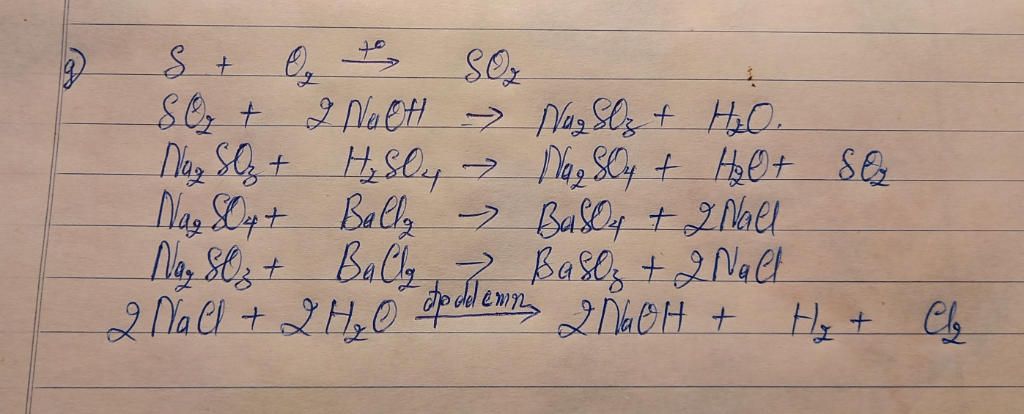 g) S + O₂ t° → SO₂
SO₂ + 2NaOH → Na₂SO₃ + H₂O.
Na₂SO₃ + H₂SO₄ → Na₂SO₄ + H₂O + SO₂
Na₂SO₄ + BaCl₂ → BaSO₄ + 2NaCl
Na₂SO₃ + BaCl₂ → BaSO₃ + 2NaCl
2NaCl + 2H₂O đpddcmn → 2NaOH + H₂ + Cl₂